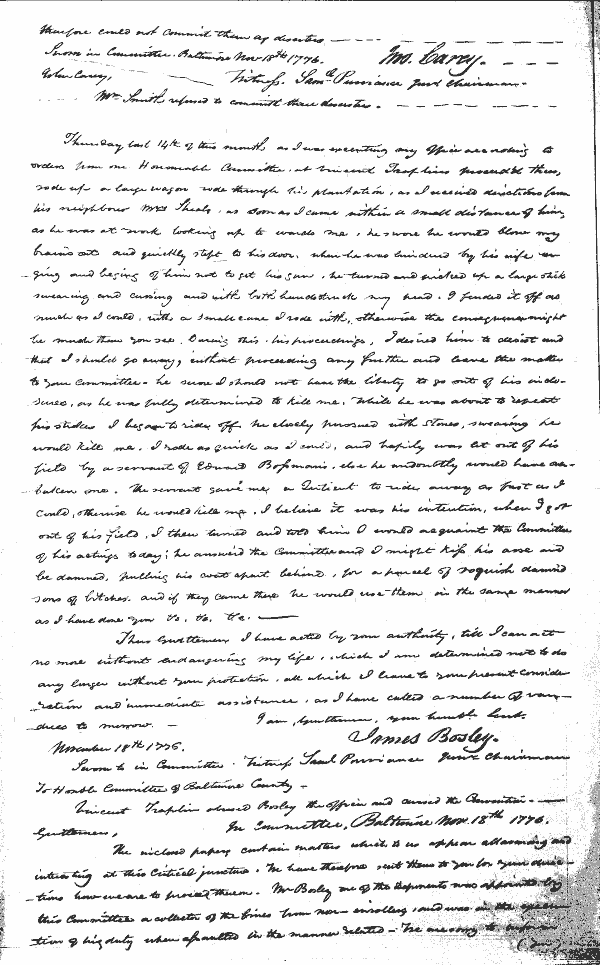 therefore could not commit them as deserters
Sworn in Committee. Baltimore Nov 18th 1776. Jno. Carey.
John Carey, Witness. Saml. Purviance junr Chairman.
Mr. Smith refused to commit three deserters.
Thursday last 14th of this month, as I was executing my Office according to
orders from our Honourable Committee, at Vincent Traplins proceeded then,
rode up a large wagon rode through his plantation, as I received directions from
his neighbour Mrs Sheals, as soon as I came within a small distance of him,
as he was at work looking up towards me, he swore he would blow my
brains out and quickly stept to his door, when he was hindered by his wife
ging and beging of him not to get his gun, he turned and picked up a large stick
swearing and cursing and with both hands struck my head. I fended it off as
much as I could, with a small cane I rode with, otherwise the consequence might
be much then you see. During this his proceedings, I desired him to desist and
that I should go away, without proceeding any further and leave the matter
to your Committee. he swore I should not have the liberty to go out of his inclo-
sures, as he was fully determined to kill me. While he was about to repeat
his strokes I began to ride off he closely pursued with stones, swearing he
would kill me. I rode as quick as I could, and hapily was let out of his
field by a servant of Edward Bossman's, else he undoubtly would have over-
taken me. The servant gave me a to ride away as fast as I
could, otherwise he would kill me. I believe it was his intention, when I got
out of his field, I then turned and told him I would acquaint the Committee
of his actings today; he answered the Committee and I might kiss his arse and
be damned, pulling his coat apart behind, for a parcel of roguish damnd
sons of bitches. and if they came there he would use them in the same manner
as I have done you &c. &c. &c.
Thus Gentlemen I have acted by your authority, till I can act
no more without endangering my life, which I am determined not to do
any longer without your protection, all which I leave to your present conside-
ration and immediate assistance, as I have called a number of van-
dues to morrow. I am, Gentlemen, your humble Servt.
November 18th 1776. James Bosley.
Sworn to in Committee. Witness Saml Purviance junr Chairman
To Honble Committee of Baltimore County -
Vincent Traplin abused Bosley the Officer and cursed the Committee.
Gentlemen, In Committee, Baltimore Nov. 18th 1776.
The inclosed papers contain matters which to us appear allarming and
interesting at this Critical juncture. We have therefore sent them to you for your direc-
tions how we are to proceed therein. Mr Bosley one of the Deponents was appointed by
this Committee a collector of the fines from non-enrollers, and was in the execu-
tion of his duty when assaulted in the manner related - We are sorry to inform